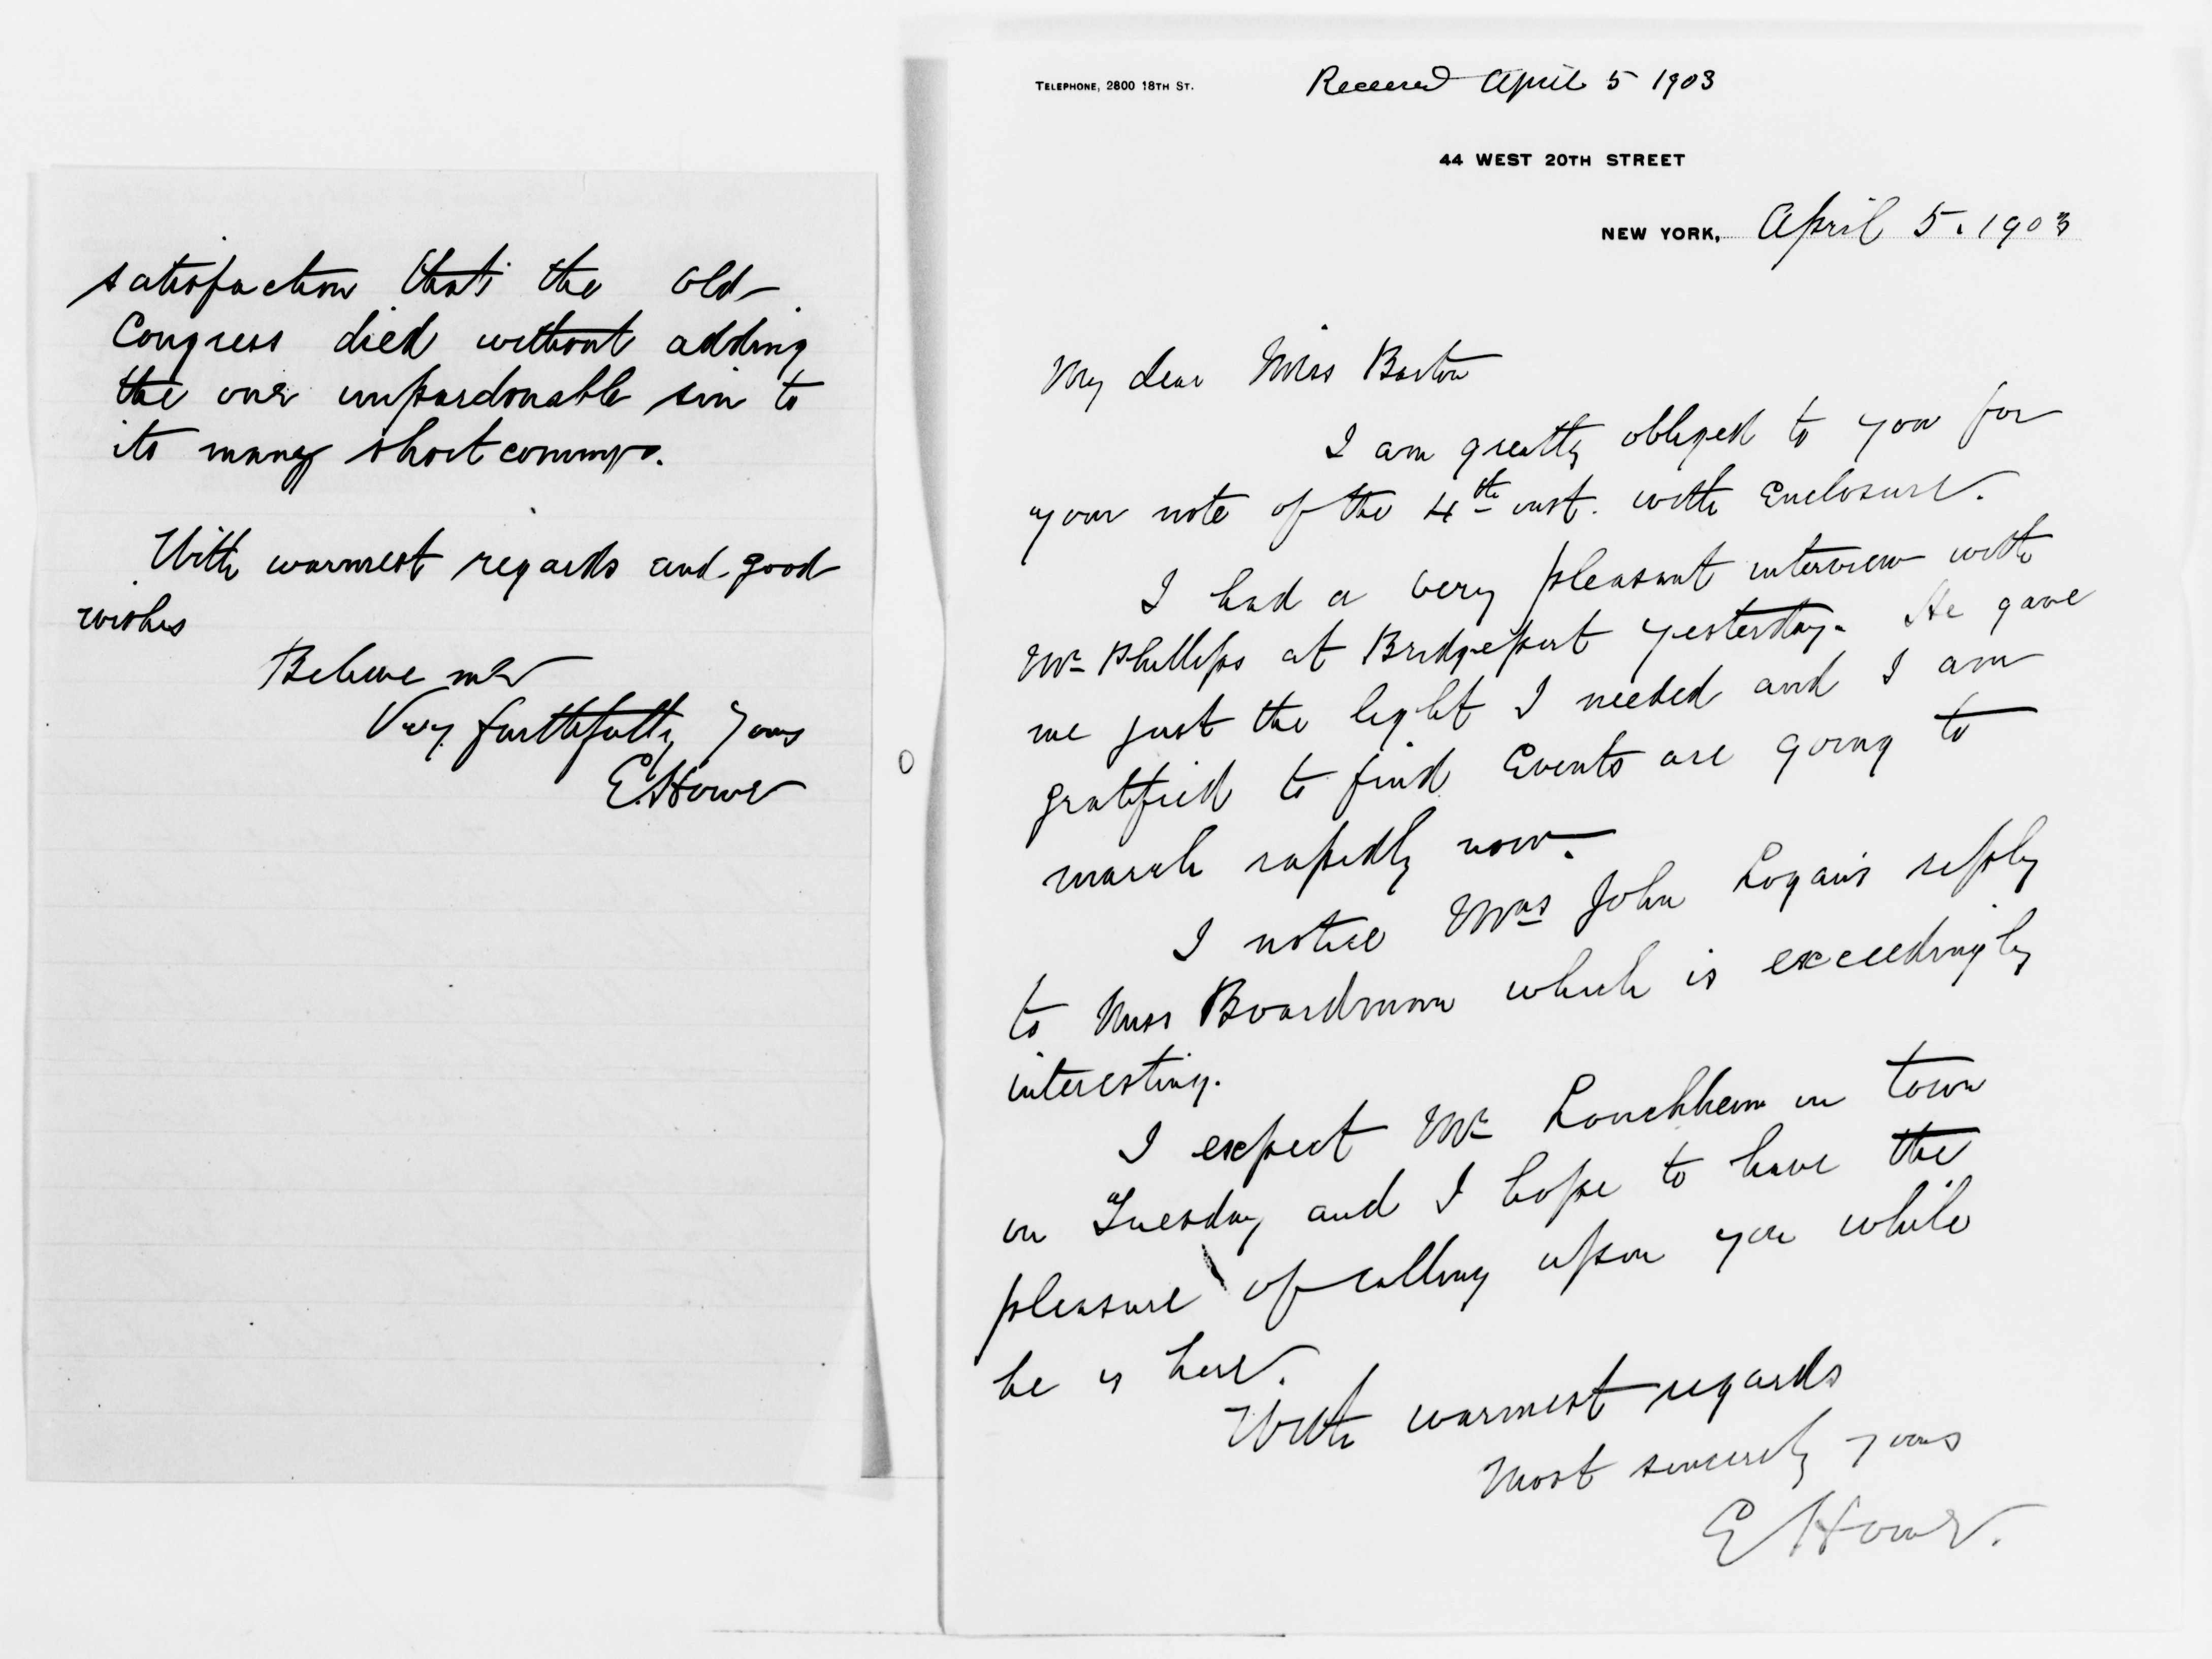 satisfaction that the old
Congress died without adding
the one unpardonable sin to
its many shortcomings.
With warmest regards and good
wishes
Believe me
Very faithfully yours
E. Howe
TELEPHONE, 2800 18TH ST.
Received April 5 1903
44 WEST 20TH STREET
NEW YORK, April 5. 1903
My dear Miss Barton
I am greatly obliged to you for
your note of the 4th inst. with Enclosure.
I had a very pleasant interview with
Mr Phillips at Bridgeport yesterday. He gave
me just the light I needed and I am
gratified to find Events are going to
march rapidly now.
I notice Mrs John Logan's reply
to Miss Boardman which is exceedingly
interesting.
I expect Mr in town
on Tuesday and I hope to have the
pleasure of calling upon you while
he is here.
With warmest regards
Most sincerely yours
E Howe.